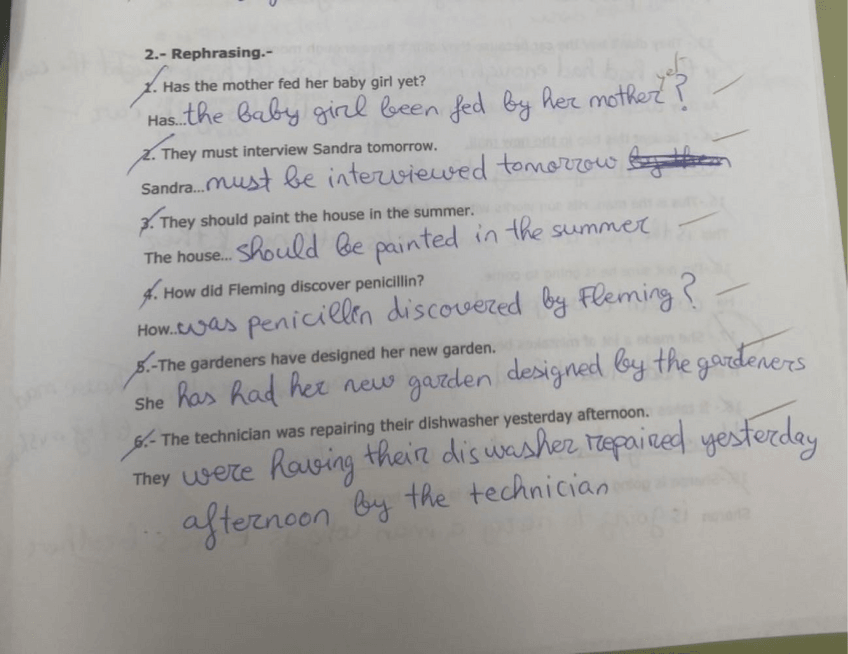 2.- Rephrasing.-
1. Has the mother fed her baby girl yet?
yet
Has...the baby girl been fed by her mother?
2. They must interview Sandra tomorrow.
Sandra...must be interviewed tomorrow by them
3. They should paint the house in the summer.
The house... should be painted in the summer
4. How did Fleming discover penicillin?
How..was penicillin discovered by Fleming?
5.-The gardeners have designed her new garden.
She has had her new garden designed by the gardeners
6.- The technician was repairing their dishwasher yesterday afternoon.
They were having their diswasher repaired yesterday
afternoon by the technician